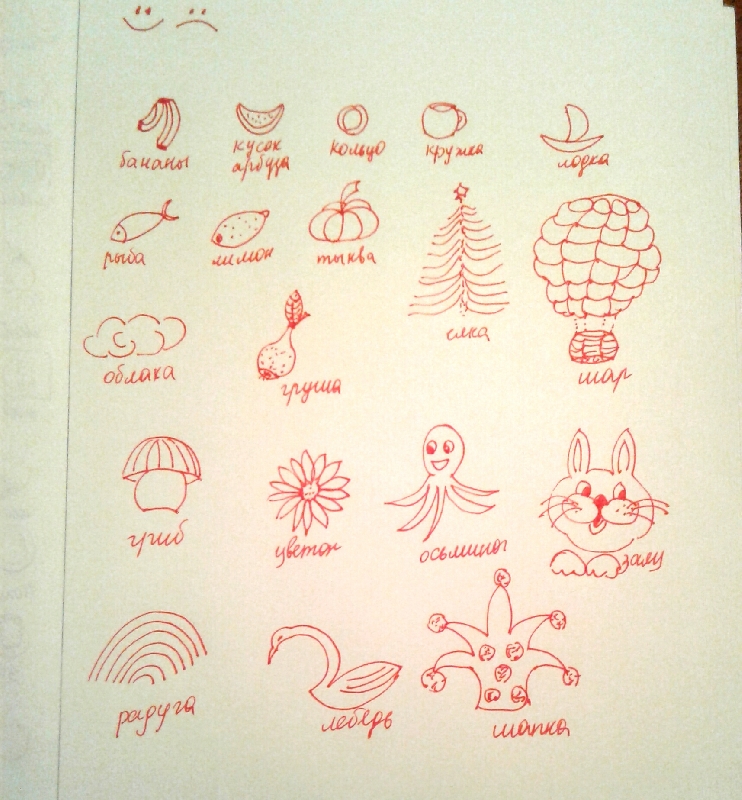 бананы
кусок
арбуза
кольцо
кружка
лодка
рыба
лимон
тыква
ёлка
шар
облака
груша
гриб
цветок
осьминог
заяц
радуга
лебедь
шапка